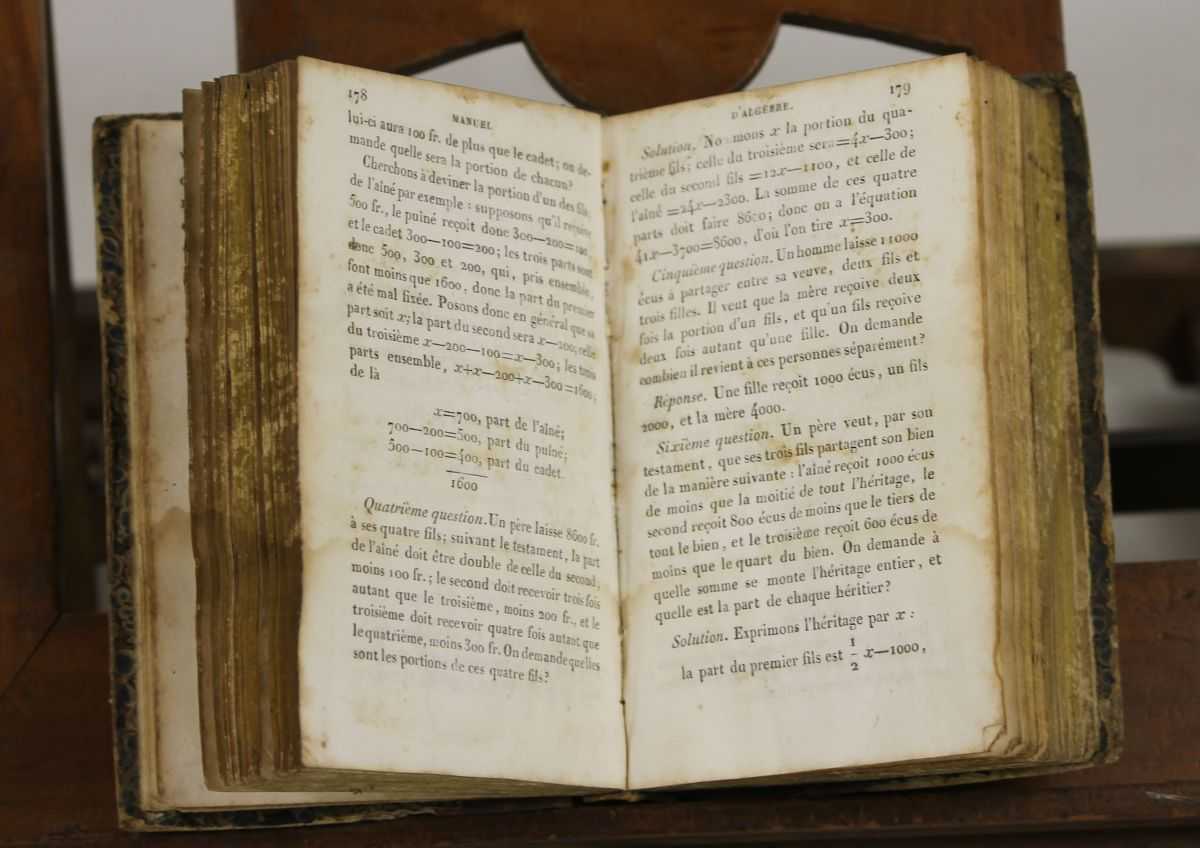 178
MANUEL
lui-ci aura 100 fr. de plus que le cadet; on de-
mande quelle sera la portion de chacun?
Cherchons à deviner la portion d'un des fils,
de l'aîné par exemple : supposons qu'il reçoive
500 fr., le puîné reçoit donc 300—200=100,
et le cadet 300—100=200; les trois parts sont
donc 500, 300 et 200, qui, pris ensemble,
font moins que 1600, donc la part du premier
a été mal fixée. Posons donc en général que sa
part soit x; la part du second sera x—200; celle
du troisième x—200—100=x—300; les trois
parts ensemble, x+x—200+x—300=1600;
de là
x=700, part de l'aîné;
700—200=500, part du puîné;
500—100=400, part du cadet.
1600
Quatrième question. Un père laisse 8600 fr.
à ses quatre fils; suivant le testament, la part
de l'aîné doit être double de celle du second,
moins 100 fr.; le second doit recevoir trois fois
autant que le troisième, moins 200 fr., et le
troisième doit recevoir quatre fois autant que
le quatrième, moins 300 fr. On demande quelles
sont les portions de ces quatre fils?
179
D'ALGÈBRE.
Solution. No mons x la portion du qua-
trième fils; celle du troisième sera=4x—300;
celle du second fils =12x—1100, et celle de
l'aîné =24x—2300. La somme de ces quatre
parts doit faire 8600; donc on a l'équation
41x—3700=8600, d'où l'on tire x=300.
Cinquième question. Un homme laisse 11000
écus à partager entre sa veuve, deux fils et
trois filles. Il veut que la mère reçoive deux
fois la portion d'un fils, et qu'un fils reçoive
deux fois autant qu'une fille. On demande
combien il revient à ces personnes séparément?
Réponse. Une fille reçoit 1000 écus, un fils
2000, et la mère 4000.
Sixième question. Un père veut, par son
testament, que ses trois fils partagent son bien
de la manière suivante : l'aîné reçoit 1000 écus
de moins que la moitié de tout l'héritage, le
second reçoit 800 écus de moins que le tiers de
tout le bien, et le troisième reçoit 600 écus de
moins que le quart du bien. On demande à
quelle somme se monte l'héritage entier, et
quelle est la part de chaque héritier?
Solution. Exprimons l'héritage par x :
la part du premier fils est 1/2 x—1000,